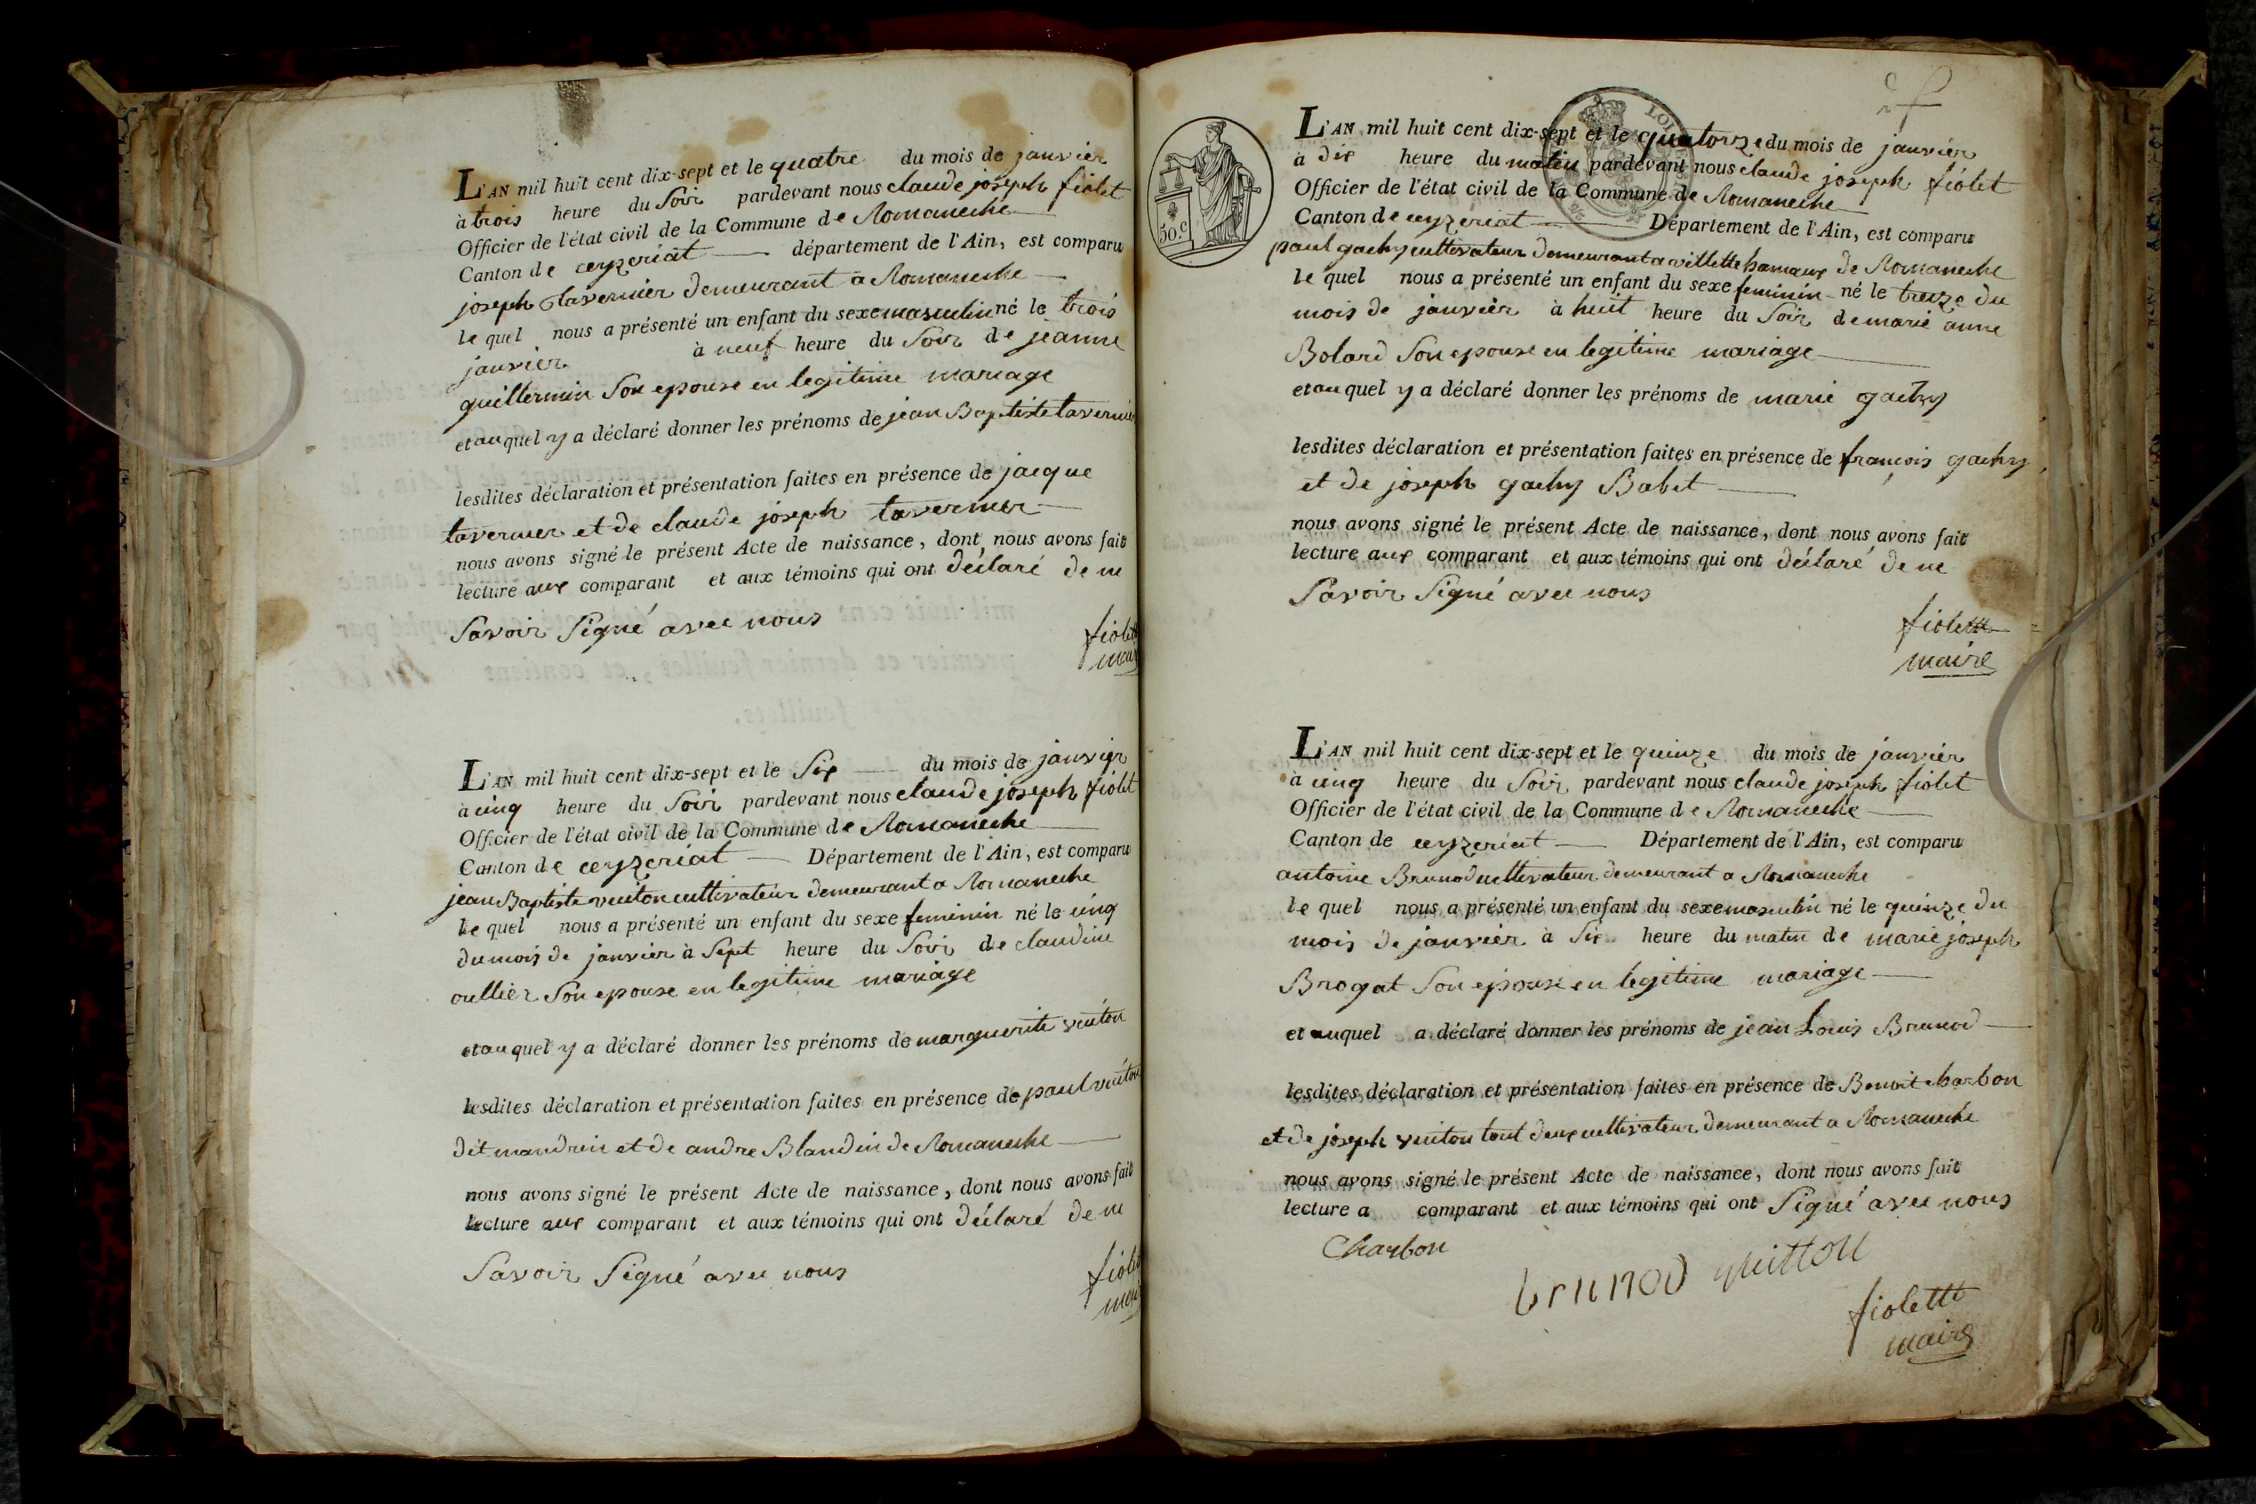 L'AN mil huit cent dix-sept et le quatre du mois de janvier
à trois heure du Soir pardevant nous claude joseph fiolet
Officier de l'état civil de la Commune de Romaneche
Canton de ceyzeriat département de l'Ain, est comparu
joseph tavernier demeurant a Romaneche
le quel nous a présenté un enfant du sexe masculin né le trois
janvier à neuf heure du Soir de jeanne
guillermin Son epouse en legitime mariage
et au quel y a déclaré donner les prénoms de jean Baptiste tavernier
lesdites déclaration et présentation faites en présence de jacque
tavernier et de claude joseph tavernier
nous avons signé le présent Acte de naissance, dont nous avons fait
lecture aux comparant et aux témoins qui ont déclaré de ne
Savoir Signé avec nous
fiolett
maire
L'AN mil huit cent dix-sept et le Six du mois de janvier
à cinq heure du Soir pardevant nous claude joseph fiolet
Officier de l'état civil de la Commune de Romaneche
Canton de ceyzeriat Département de l'Ain, est comparu
jean Baptiste vuiton cultivateur demeurant a Romaneche
le quel nous a présenté un enfant du sexe feminin né le cinq
du mois de janvier à Sept heure du Soir de claudine
oullier Son epouse en legitime mariage
et au quel y a déclaré donner les prénoms de marguerite vuiton
lesdites déclaration et présentation faites en présence de paul vuiton
dit mandrin et de andre Blandin de Romaneche
nous avons signé le présent Acte de naissance, dont nous avons fait
lecture aux comparant et aux témoins qui ont déclaré de ne
Savoir Signé avec nous
fiolett
maire
50.c
LOI
L'AN mil huit cent dix-sept et le quatorze du mois de janvier
à dix heure du matin pardevant nous claude joseph fiolet
Officier de l'état civil de la Commune de Romaneche
Canton de ceyzeriat Département de l'Ain, est comparu
paul gachy cultivateur demeurant a villette hamaux de Romaneche
le quel nous a présenté un enfant du sexe feminin né le treize du
mois de janvier à huit heure du Soir de marie anne
Bolard Son epouse en legitime mariage
et au quel y a déclaré donner les prénoms de marie gachy
lesdites déclaration et présentation faites en présence de françois gachy,
et de joseph gachy Babet
nous avons signé le présent Acte de naissance, dont nous avons fait
lecture aux comparant et aux témoins qui ont déclaré de ne
Savoir Signé avec nous
fiolett
maire
L'AN mil huit cent dix-sept et le quinze du mois de janvier
à cinq heure du Soir pardevant nous claude joseph fiolet
Officier de l'état civil de la Commune de Romaneche
Canton de ceyzeriat Département de l'Ain, est comparu
antoine Brunod cultivateur demeurant a Romaneche
le quel nous a présenté un enfant du sexe masculin né le quinze du
mois de janvier à Six heure du matin de marie joseph
Brogat Son epouse en legitime mariage
et auquel a déclaré donner les prénoms de jean Louis Brunod
lesdites déclaration et présentation faites en présence de Benoit charbon
et de joseph vuiton tout deux cultivateur demeurant a Romaneche
nous avons signé le présent Acte de naissance, dont nous avons fait
lecture a comparant et aux témoins qui ont Signé avec nous
Charbon
brunod vuitton
fiolett
maire